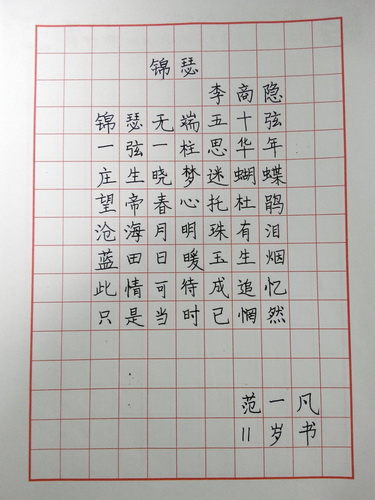 锦瑟
李商隐
锦瑟无端五十弦
一弦一柱思华年
庄生晓梦迷蝴蝶
望帝春心托杜鹃
沧海月明珠有泪
蓝田日暖玉生烟
此情可待成追忆
只是当时已惘然
范一凡
11岁书